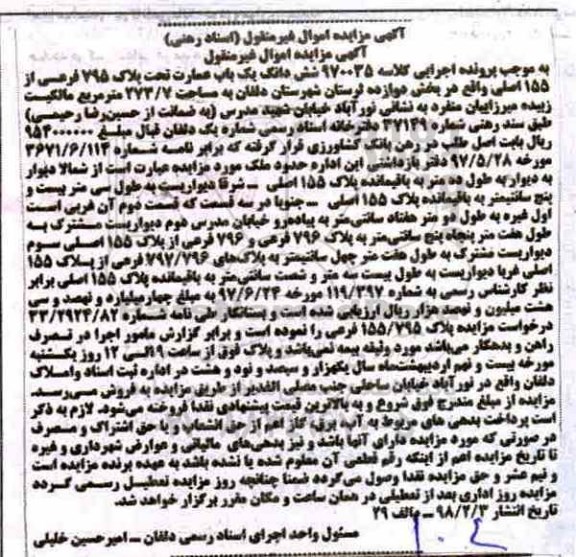 آگهی مزایده اموال غیرمنقول (اسناد رهنی)
آگهی مزایده اموال غیرمنقول
به موجب پرونده اجرایی کلاسه ۹۷۰۰۳۵ شش دانگ یک باب عمارت تحت پلاک ۷۹۵ فرعی از
۱۵۵ اصلی واقع در بخش دوازده لرستان شهرستان دلفان به مساحت ۲۷۳/۷ مترمربع مالکیت
زبیده میرزاییان منفرد به نشانی نورآباد خیابان شهید مدرس (به ضمانت از حسین‌رضا رحیمی)
طبق سند رهنی شماره ۳۷۱۴۹ دفترخانه اسناد رسمی شماره یک دلفان قبال مبلغ ۹۵۴۰۰۰۰۰۰
ریال بابت اصل طلب در رهن بانک کشاورزی قرار گرفته که برابر نامه شماره ۳۶۷۱/۶/۱۱۴
مورخه ۹۷/۵/۲۸ دفتر بازداشتی این اداره حدود ملک مورد مزایده عبارت است از شمالا دیوار
به دیوار به طول ده متر به باقیمانده پلاک ۱۵۵ اصلی ـ شرقا دیواریست به طول سی متر بیست و
پنج سانتیمتر به باقیمانده پلاک ۱۵۵ اصلی ـ جنوبا در سه قسمت که قسمت دوم آن غربی است
اول غیره به طول دو متر هفتاد سانتی‌متر به پیاده‌رو خیابان مدرس دوم دیواریست مشترک به
طول هفت متر پنجاه پنج سانتی‌متر به پلاک ۷۹۶ فرعی و ۷۹۶ فرعی از پلاک ۱۵۵ اصلی سوم
دیواریست مشترک به طول هفت متر چهل سانتیمتر به پلاک‌های ۷۹۷/۷۹۶ فرعی از پلاک ۱۵۵
اصلی غربا دیواریست به طول بیست سه متر و شصت سانتی‌متر به باقیمانده پلاک ۱۵۵ اصلی برابر
نظر کارشناس رسمی به شماره ۱۱۹/۳۹۷ مورخه ۹۷/۶/۲۴ به مبلغ چهارمیلیارد و نهصد و سی
هشت میلیون و نهصد هزار ریال ارزیابی شده است و بستانکار طی نامه شماره ۳۳/۲۹۲۴/۸۲
درخواست مزایده پلاک ۱۵۵/۷۹۵ فرعی را نموده است و برابر گزارش مامور اجرا در تصرف
راهن و بدهکار می‌باشد مورد وثیقه بیمه نمی‌باشد و پلاک فوق از ساعت ۹ الی ۱۲ روز یکشنبه
مورخه بیست و نهم اردیبهشت‌ماه سال یکهزار و سیصد و نود و هشت در اداره ثبت اسناد واملاک
دلفان واقع در نورآباد خیابان ساحلی جنب مصلی الغدیر از طریق مزایده به فروش می‌رسد.
مزایده از مبلغ مندرج فوق شروع و به بالاترین قیمت پیشنهادی نقدا فروخته می‌شود. لازم به ذکر
است پرداخت بدهی های مربوط به آب، برق، گاز اعم از حق انشعاب و یا حق اشتراک و مصرف
در صورتی که مورد مزایده دارای آنها باشد و نیز بدهی‌های مالیاتی و عوارض شهرداری و غیره
تا تاریخ مزایده اعم از اینکه رقم قطعی آن معلوم شده یا نشده باشد به عهده برنده مزایده است
و نیم عشر و حق مزایده نقدا وصول می‌گردد ضمنا چنانچه روز مزایده تعطیل رسمی گردد
مزایده روز اداری بعد از تعطیلی در همان ساعت و مکان مقرر برگزار خواهد شد.
تاریخ انتشار ۹۸/۲/۳ ـ م‌الف ۲۹
مسئول واحد اجرای اسناد رسمی دلفان ـ امیرحسین خلیلی